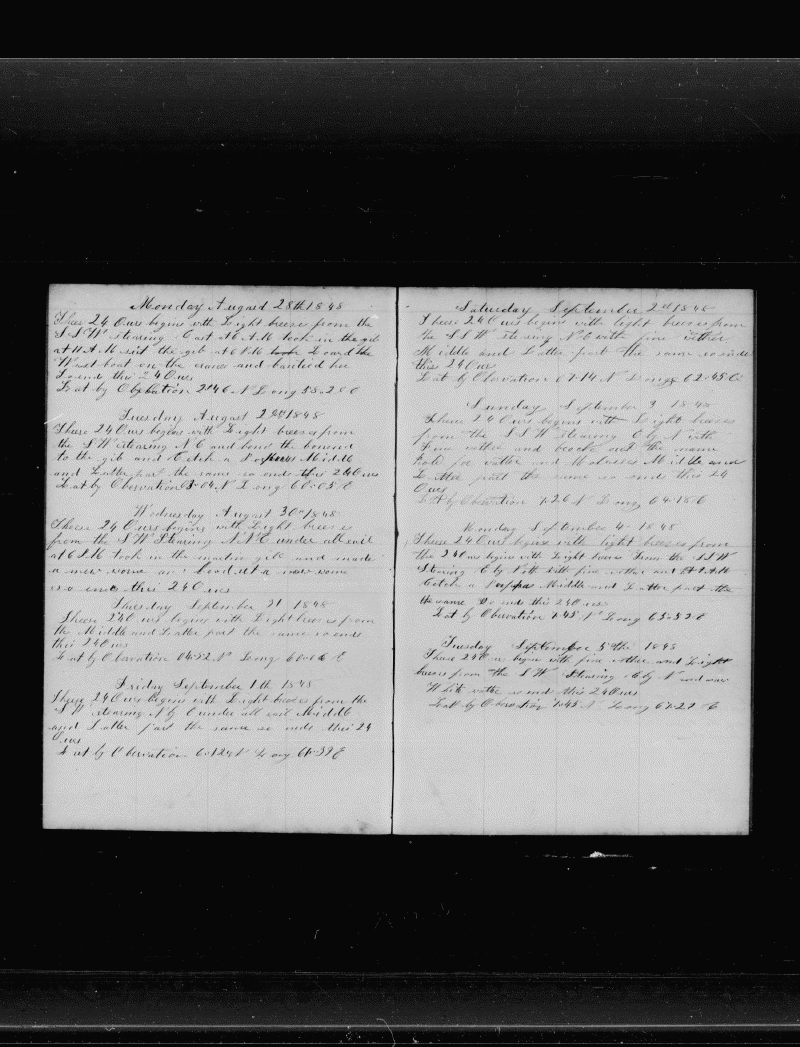 Monday Augusd 28th 1848
These 24 Ours begins with Light breese from the
S S W Stearing East at 6 A.M took in the gib
at 11 A.M sit the gib at 6 P.M Loard the
Wast boat on the cranes and hauled her
So ends this 24 Ours
Lat by Obsbation 2"46 N Long 58-28 E
Tuesday August 29th 1848
These 24 Ours begins with Light breeses from
the SW stearing N E and bend the bonnid
to the gib and Cetch a Porpus Middle
and Latter part the same so ends this 24 Ours
Lat by Obervation 3-04 N Long 60-05 E
Wednesday August 30th 1848
Theese 24 Ours begins with Light breeses
from the S W Stearing N N E under all sail
at 6 P.M took in the gib and made
a new
so ends this 24 Ours
Thursday September 31 1848
Theese 240 urs begins with Light breeses from
the Middle and Latter part the same so ends
this 24 Ours
Lat by Obarvation 04-52 N Long 60-06 E
Friday September 1th 1848
These 24 Ours begins with Light breeses from the
S W stearing N by E under all sail Middle
and Latter part the same so ends this 24
Ours
Lat by Obervation 6-12 N Long 61-39 E
Saturday September 2d 1848
These 24 Ours begins with light breeses from
the S S W stearing N E with fine wether
Middle and Latter part the same so ends
this 24 Ours
Lat by Obervation 07-14 N Long 62-45 E
Sunday September 3 1848
These 24 Ours begins with Light breeses
from the S S W Stearing E by N with
Fine wether and broke out the main
hole for watter and Molasses Middle and
Latter part the same so ends this 24
Ours
Lat by Obervation 7-26 N Long 64-18 E
Monday September 4th 1848
Theese 24 Ours begins with light breeses from
the 24 Ours begins with Light breeses from the S S W
Stearing E by N with fine wether and At A.M
Cetch a Porpus Middle and Latter part the
the same So ends this 24 Ours
Lat by Obervation 7-45 N Long 65-52 E
Tuesday September 5the 1848
These 24 Ours begins with fine wether and Light
breeses from the S W Stearing E by N and saw
White watter so ends this 24 Ours
Latt by Obervation 7-48 N Long 67-27 E